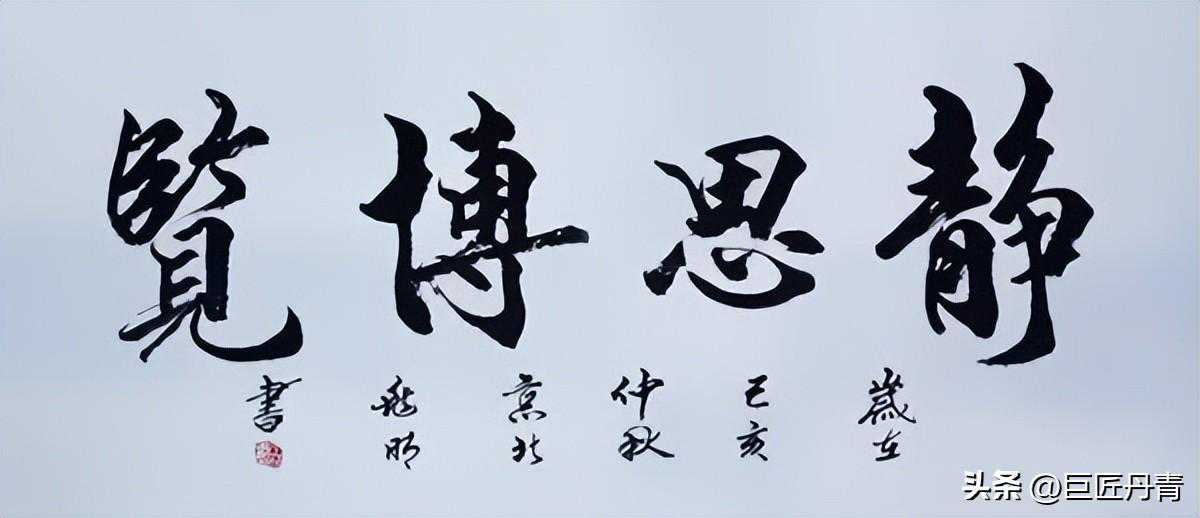 静思博覽
歲在
己亥
仲秋
書
头条 @巨匠丹青